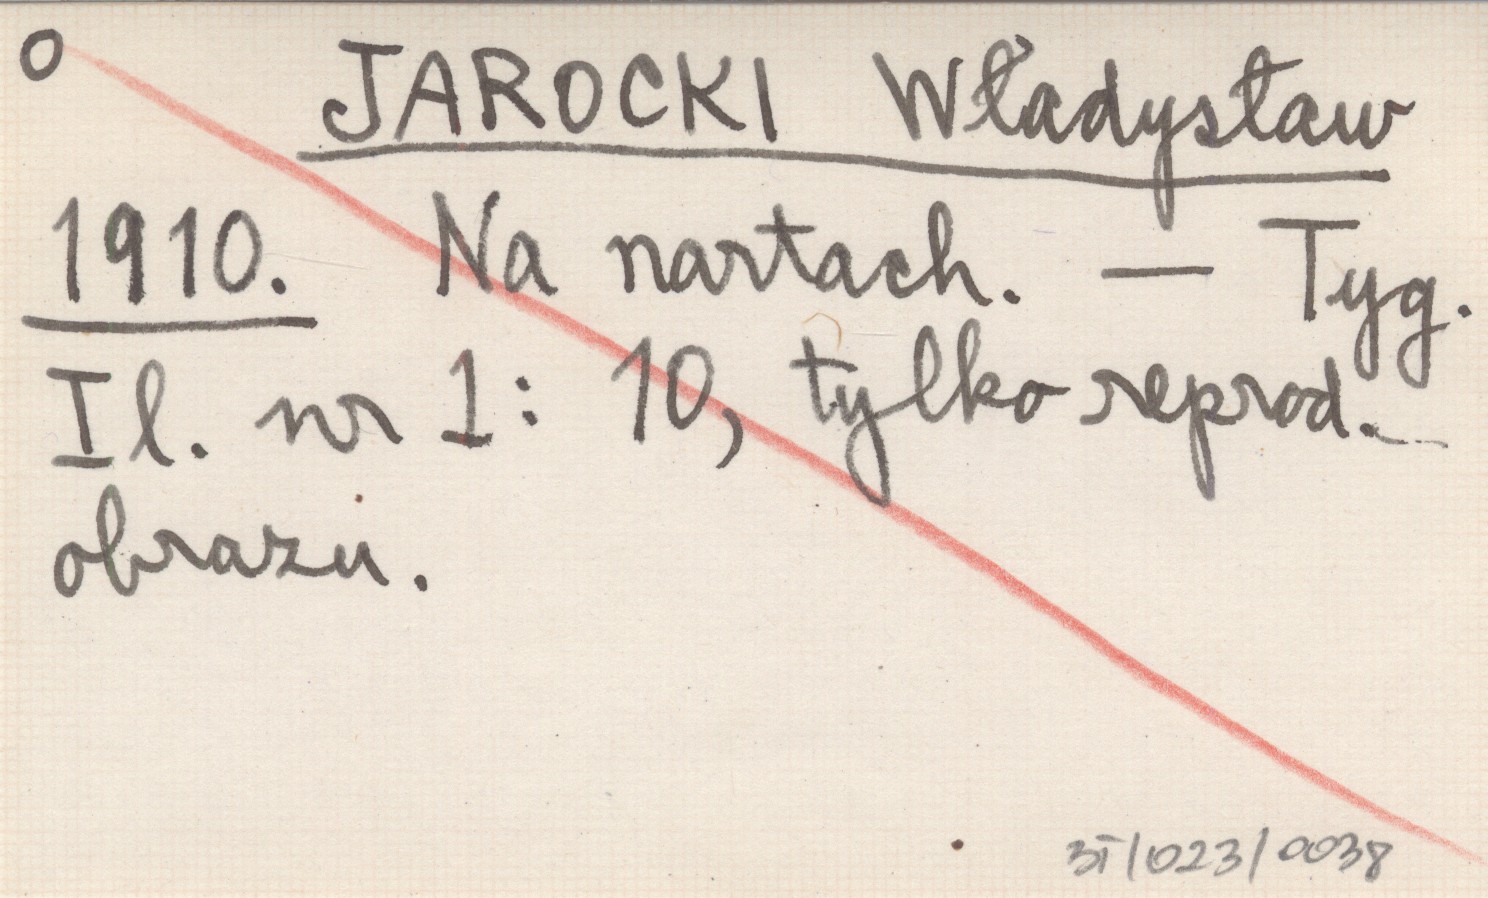 O JAROCKI Władysław
1910. Na nartach. — Tyg.
Il. nr 1: 10, tylko reprod.
obrazu.
3I/023/0038